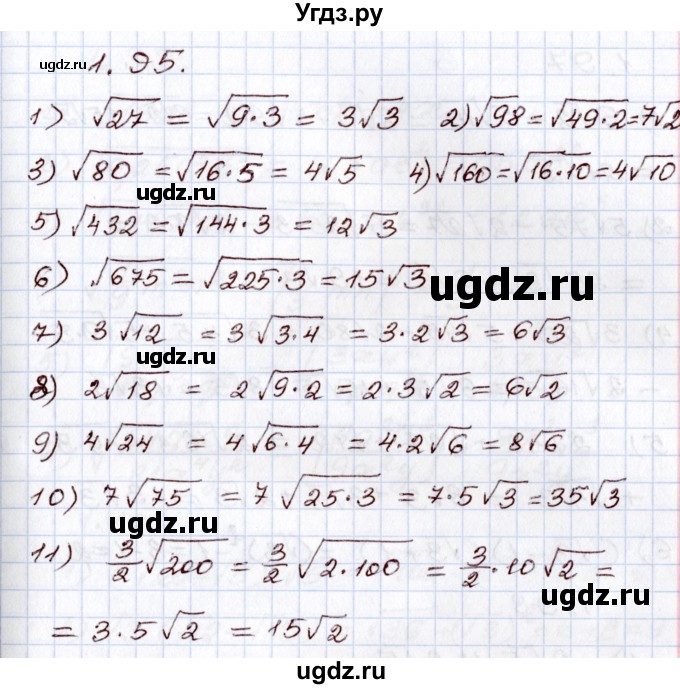 Угдз.ру
ugdz.ru
1.95.
1) √27 = √9·3 = 3√3 2) √98 = √49·2 = 7√2
3) √80 = √16·5 = 4√5 4) √160 = √16·10 = 4√10
ugdz.ru
5) √432 = √144·3 = 12√3
6) √675 = √225·3 = 15√3
ugdz.ru
7) 3√12 = 3√3·4 = 3·2√3 = 6√3
ugdz.ru
8) 2√18 = 2√9·2 = 2·3√2 = 6√2
9) 4√24 = 4√6·4 = 4·2√6 = 8√6
10) 7√75 = 7√25·3 = 7·5√3 = 35√3
ugdz.ru
11) 3/2 √200 = 3/2 √2·100 = 3/2 · 10√2 =
ugdz.ru
= 3·5√2 = 15√2
ugdz.ru